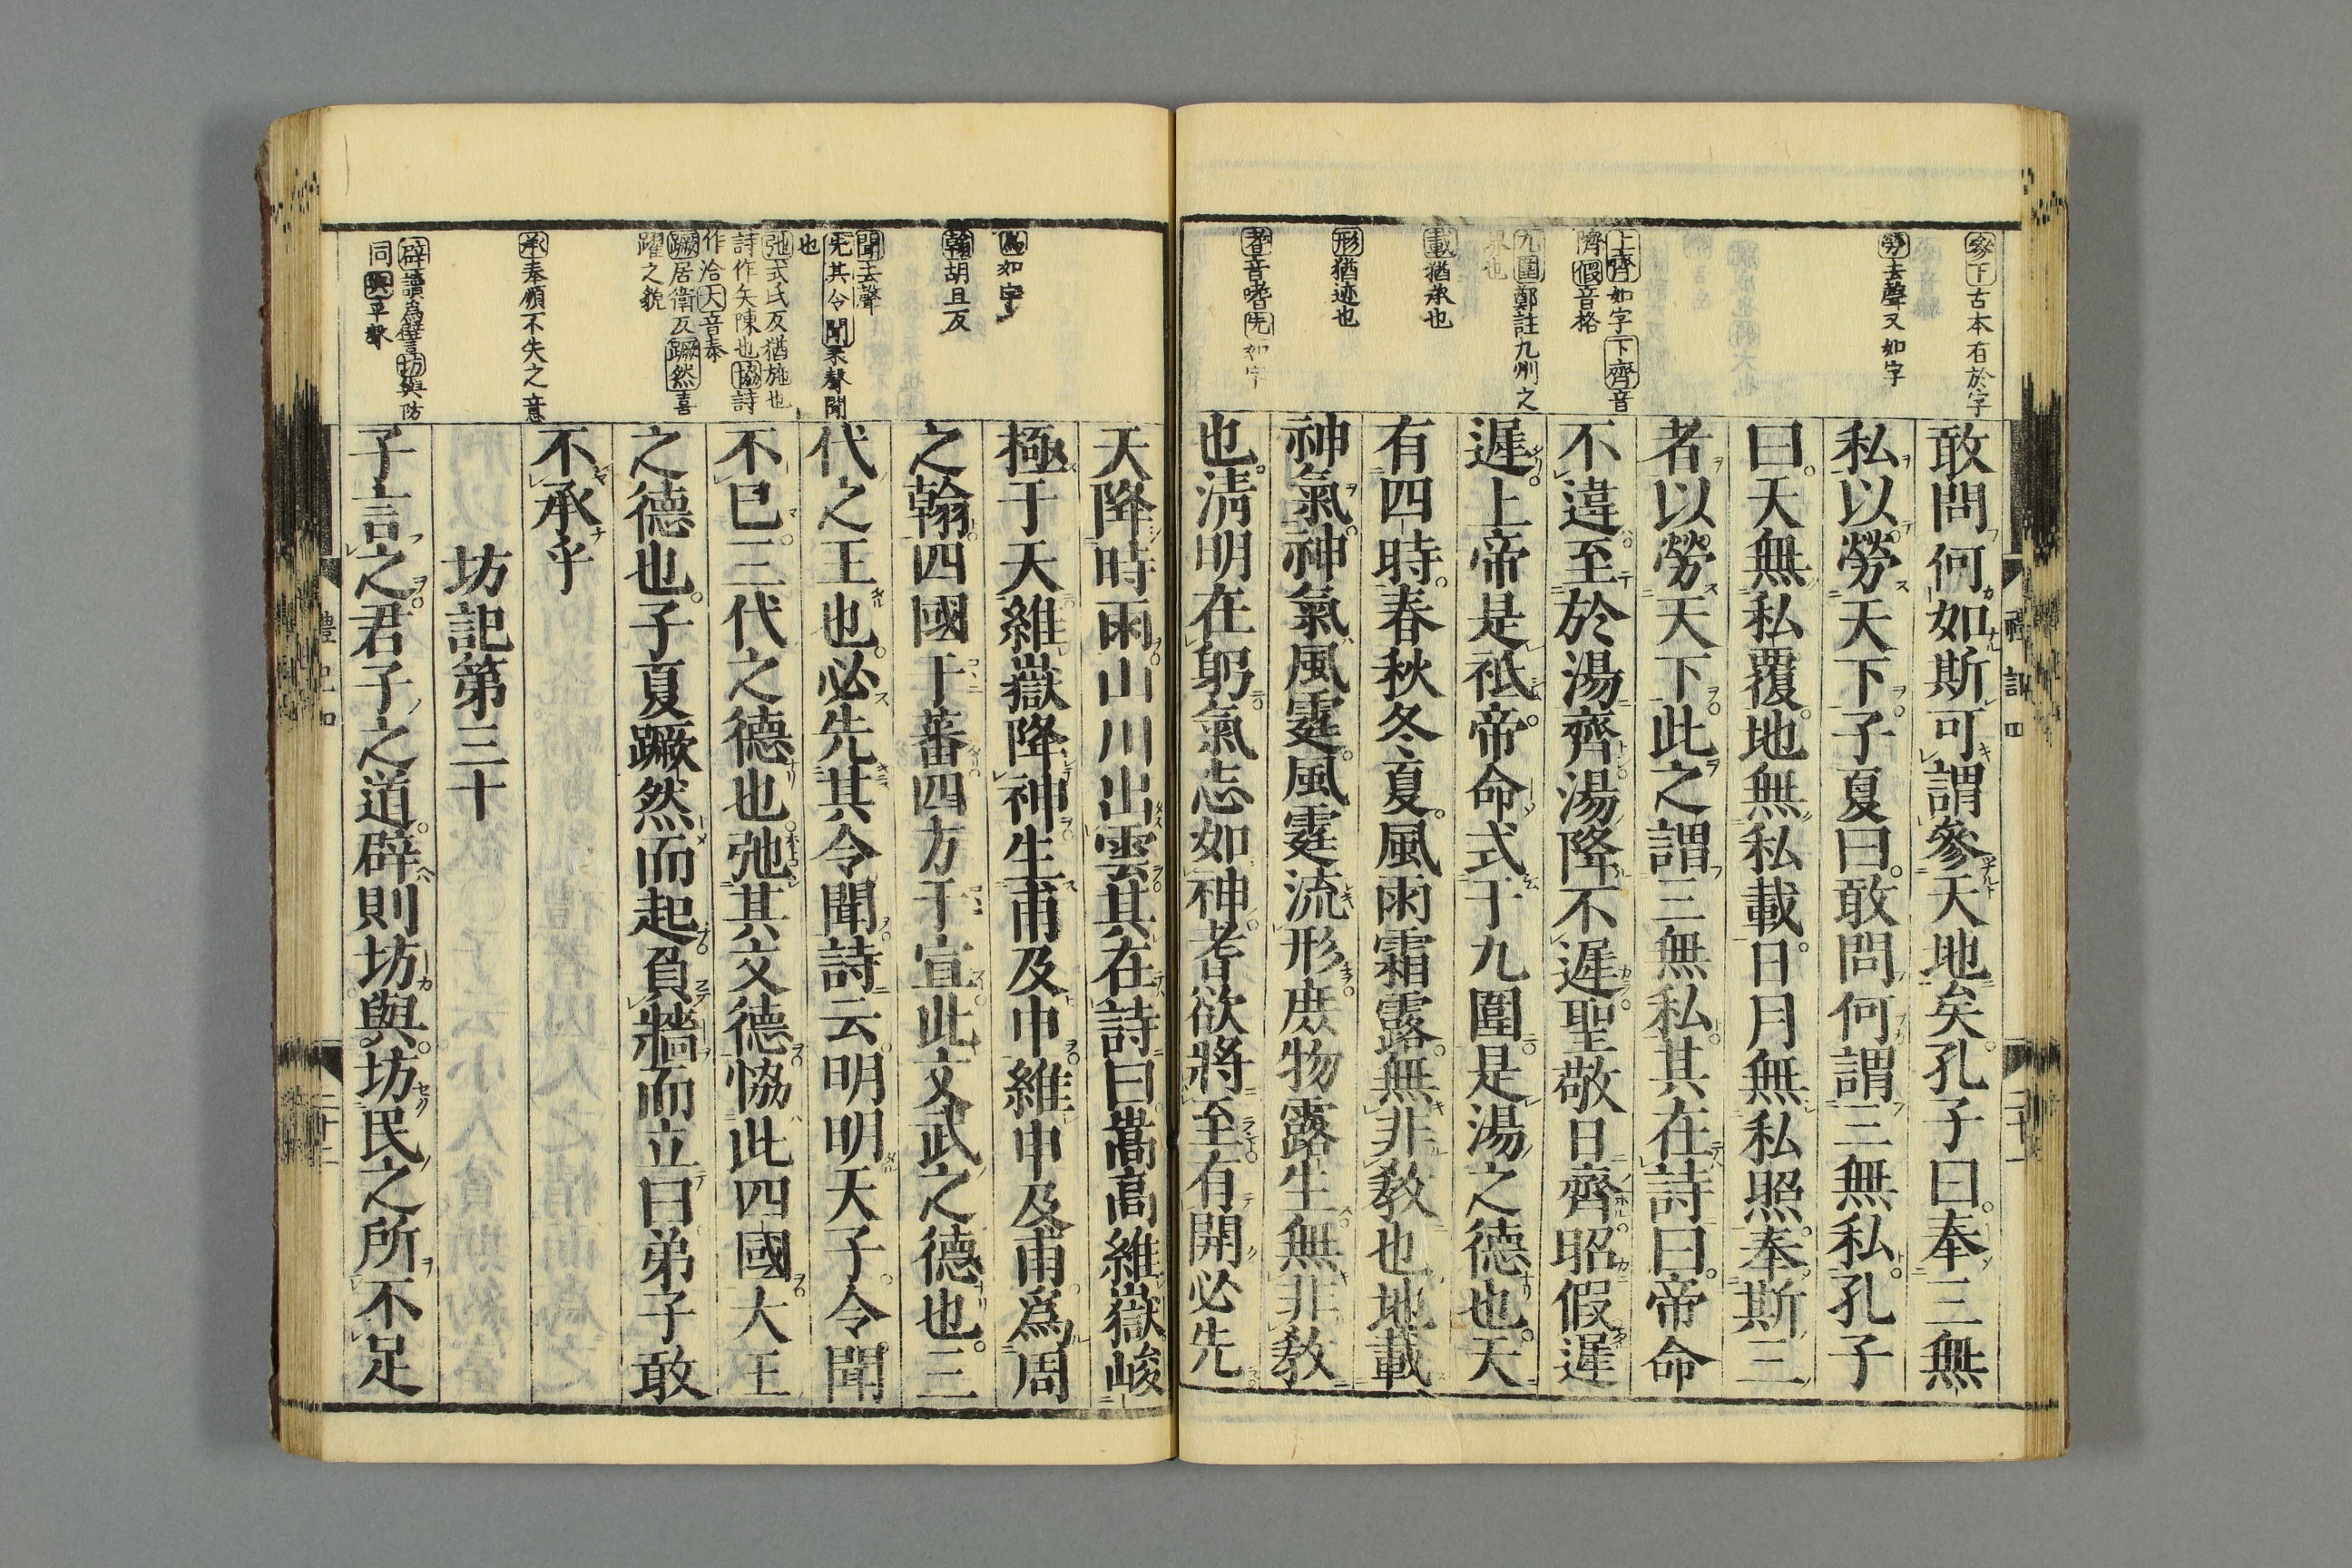 參下古本有於字
勞去聲又如字
上齊如字下齊音
隮假音格
九圍鄭註九州之
界也
載猶承也
形猶迹也
耆音嗜先如字
敢問何如斯可謂參天地矣孔子曰奉三無
私以勞天下子夏曰敢問何謂三無私孔子
曰天無私覆地無私載日月無私照奉斯三
者以勞天下此之謂三無私其在詩曰帝命
不違至於湯齊湯降不遲聖敬日齊昭假遲
遲上帝是祗帝命式于九圍是湯之德也天
有四時春秋冬夏風雨霜露無非敎也地載
神氣神氣風霆風霆流形庶物露生無非敎
也淸明在躬氣志如神耆欲將至有開必先
爲如字
翰胡旦反
聞去聲
先其令聞聞
也
弛式氏反猶施也
詩作矢陳也協詩
作洽大音泰
蹶居衛反蹶然喜
躍之貌
承奉順不失之意
辟讀爲譬坊與防
同與平聲
天降時雨山川出雲其在詩曰嵩高維嶽峻
極于天維嶽降神生甫及申維申及甫爲周
之翰四國于蕃四方于宣此文武之德也三
代之王也必先其令聞詩云明明天子令聞
不已三代之德也弛其文德協此四國大王
之德也子夏蹶然而起負牆而立曰弟子敢
不承乎
坊記第三十
子言之君子之道辟則坊與坊民之所不足